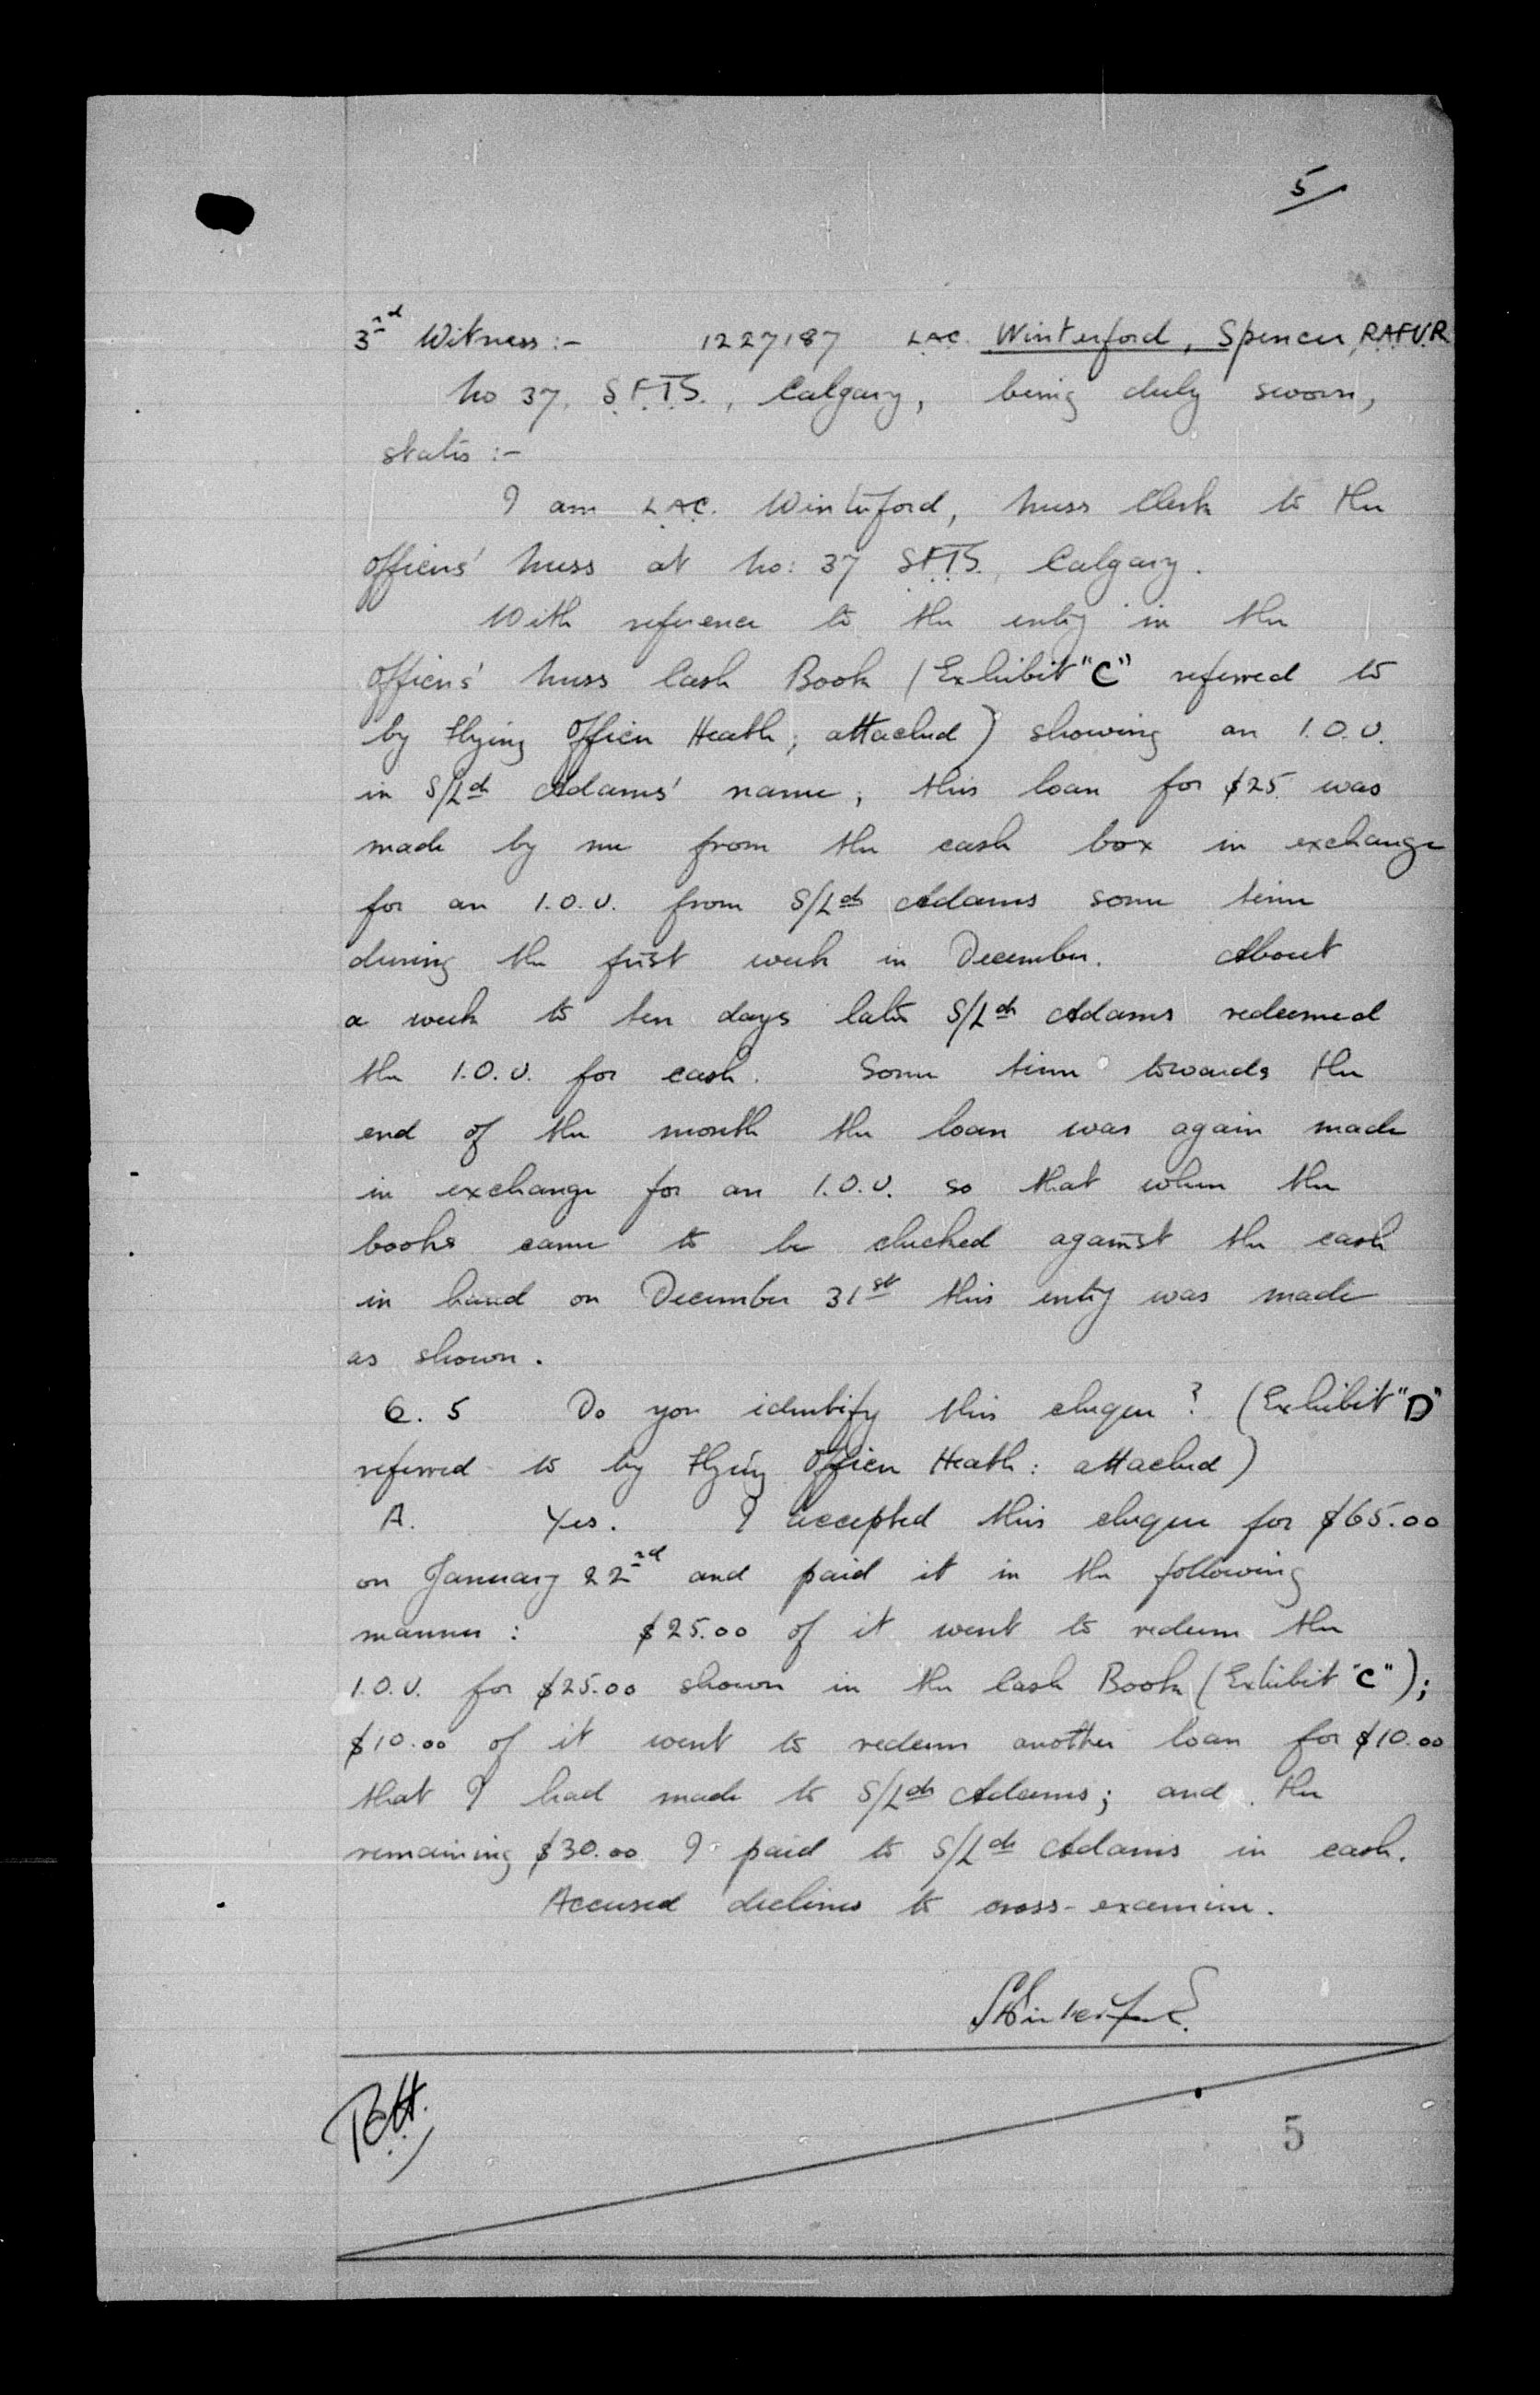 5
3rd Witness :- 1227187 L.A.C. Winterford, Spencer, R.A.F.V.R
No 37, S.F.T.S., Calgary, being duly sworn,
states :-
I am L.A.C. Winterford, Mess Clerk to the
Officers' Mess at No: 37 S.F.T.S., Calgary.
With reference to the entry in the
Officers' Mess Cash Book (Exhibit "C" referred to
by Flying Officer Heath; attached) showing an I.O.U.
in S/Ldr Adams' name; this loan for $25 was
made by me from the cash box in exchange
for an I.O.U. from S/Ldr Adams some time
during the first week in December. About
a week to ten days later S/Ldr Adams redeemed
the I.O.U. for cash. Some time towards the
end of the month the loan was again made
in exchange for an I.O.U. so that when the
books came to be checked against the cash
in hand on December 31st this entry was made
as shown.
Q. 5 Do you identify this cheque? (Exhibit "D"
referred to by Flying Officer Heath: attached)
A. Yes. I accepted this cheque for $65.00
on January 22nd and paid it in the following
manner: $25.00 of it went to redeem the
I.O.U. for $25.00 shown in the Cash Book (Exhibit "C");
$10.00 of it went to redeem another loan for $10.00
that I had made to S/Ldr Adams; and the
remaining $30.00 I paid to S/Ldr Adams in cash.
Accused declines to cross-examine.
SWinterford.
5